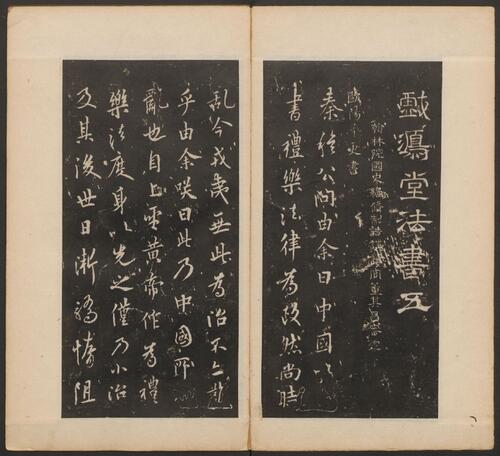 戲鴻堂法書五
翰林院國史編修制誥講讀官董其昌審定
歐陽率更書
秦穆公问由余曰中國以
書禮樂法律為政然尚時
乱今戎夷無此為治不亦難
乎由余咲曰此乃中國所
亂也自上聖黄帝作為禮
樂法度身以先之僅乃小治
及其後世日漸驕惰阻